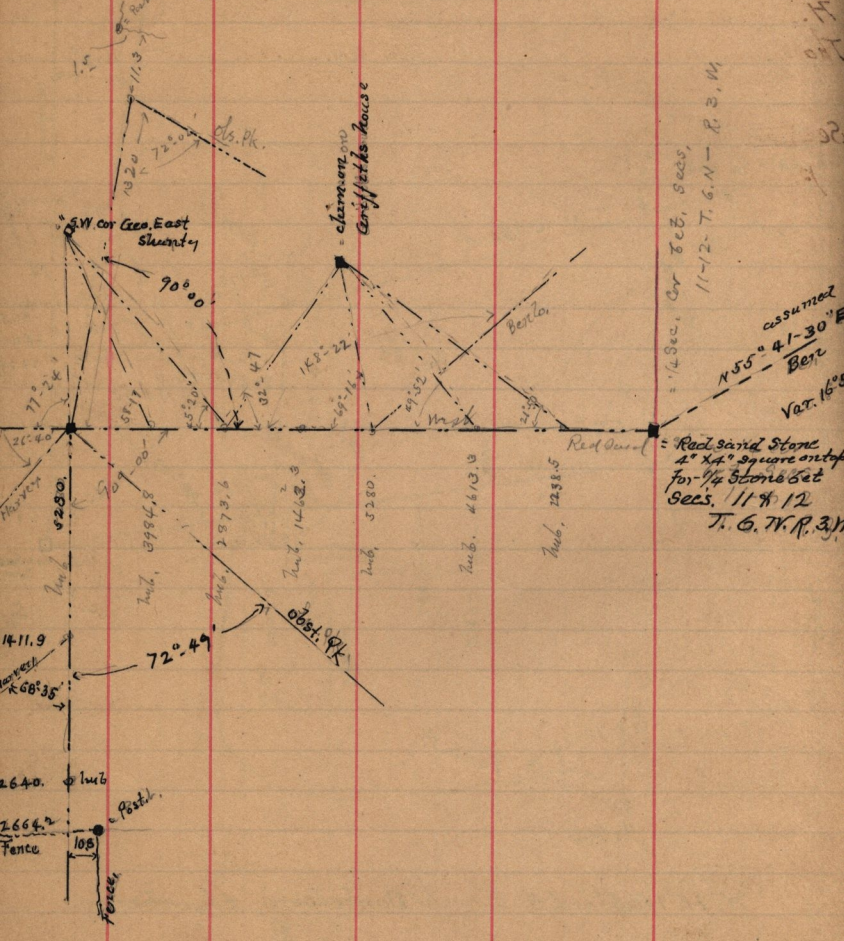 11.3
1320
72°-00'
obs. Pk.
S.W. cor Geo. East
Shanty
90°-00'
= chimney on
Griffiths house
= 1/4 Sec, Cor bet, Secs,
11-12- T. 6. N - R. 3, W,
assumed
N 55° 41-30" E
Ben
Var. 16°
77°-24'
26°-40
Harvey
58-17
45°-20
32°-47
148°-22
69°-16'
49°-52'
Benlo,
West
Red Sand
= Red sand Stone
4" X 4" square on top
for 1/4 Stone bet
Sec's. 11 & 12
T. 6. N. R. 3, W
90°-00'
hub, 5280.
hub, 3984.8
hub, 2873.6
hub, 1462.3
hub, 5280.
hub. 4613.3
hub, 1238.5
obst. Pk
72°-49'
1411.9
Harvey
68°35'
2640.
hub
2664.2
Fence
= Post.
108
Fence,